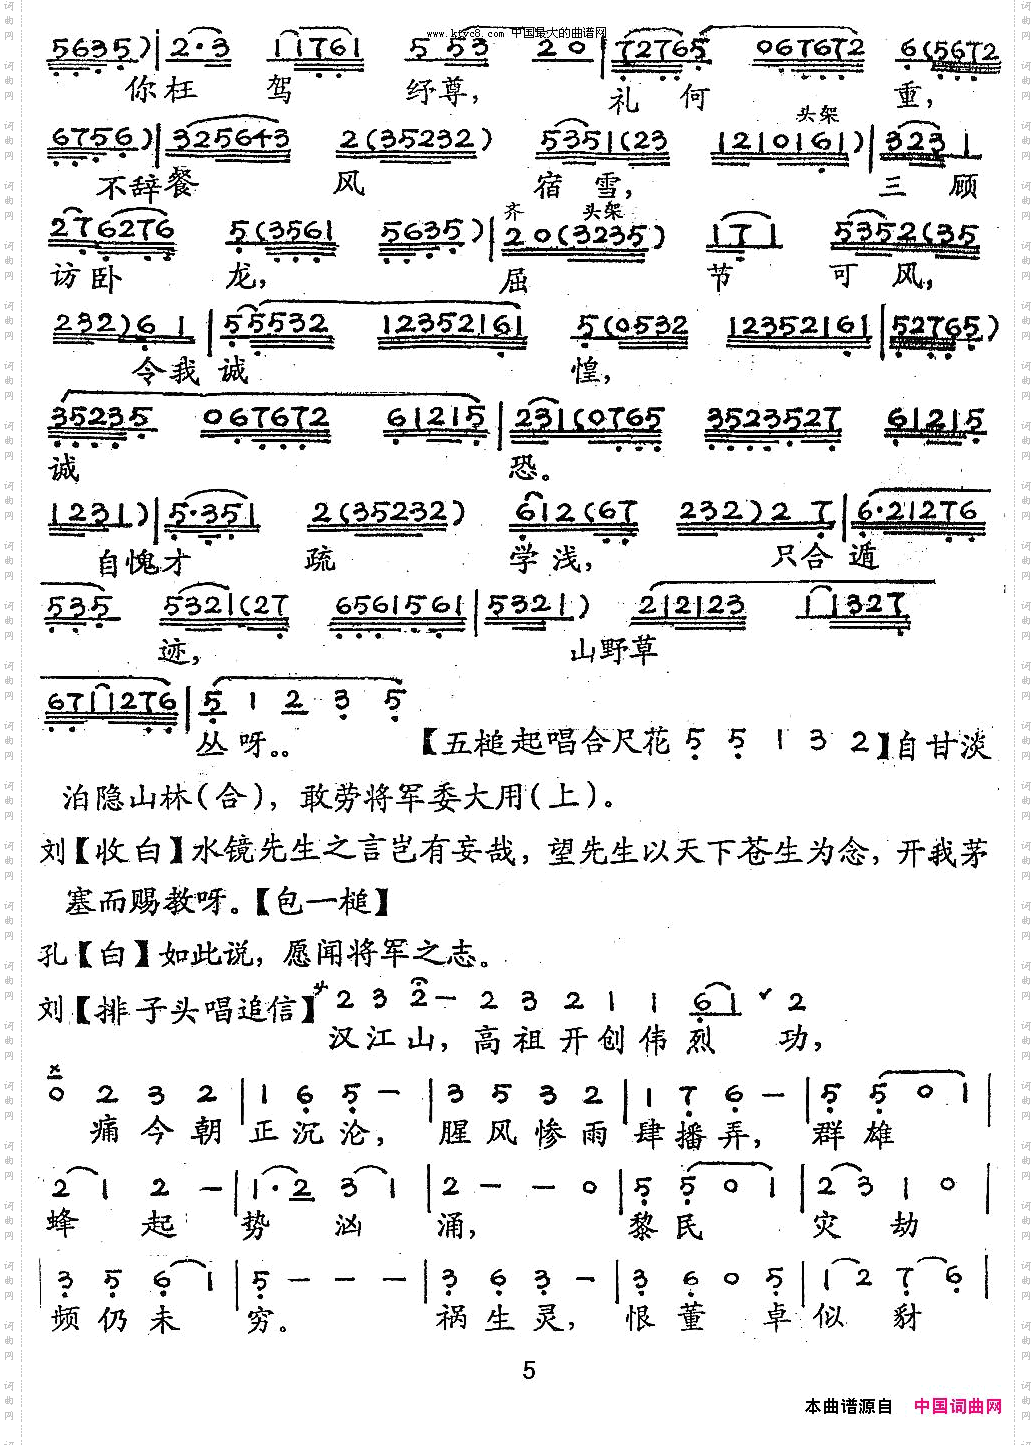 www.ktvc8.com 中国最大的曲谱网
5635) 2·3 11761 5 53 20 72765 067672 6(5672
你枉驾 纡尊, 礼何重,
头架
6756) 325643 2(35232) 5351(23 1210161) 323 1
不辞餐风宿雪, 三顾
齐 头架
276276 5(3561 5635) 20(3235) 171 5352(35
访卧龙, 屈节可风,
232)61 55532 12352161 5(0532 12352161 52765)
令我诚惶,
35235 067672 61215 231(0765 3523527 61215
诚恐。
1231) 5·351 2(35232) 612(67 232)27 6·21276
自愧才疏学浅, 只合遁
535 5321(27 6561561 5321) 212123 111327
迹, 山野草
6711276 5 1 2 3 5
丛呀。。 【五槌起唱合尺花 5 5 1 3 2】自甘淡
泊隐山林(合),敢劳将军委大用(上)。
刘【收白】水镜先生之言岂有妄哉,望先生以天下苍生为念,开我茅
塞而赐教呀。【包一槌】
孔【白】如此说,愿闻将军之志。
刘【排子头唱追信】 2 3 2 - 2 3 2 1 1 61 2
汉江山,高祖开创伟烈功,
0 2 3 2 1 6 5 - 3 5 3 2 1 7 6 - 5 5 0 1
痛今朝正沉沦,腥风惨雨肆播弄,群雄
2 1 2 - 1·2 3 1 2 - - 0 5 5 0 1 2 3 1 0
蜂起势汹涌, 黎民灾劫
3 5 6 1 5 - - - 3 6 3 - 3 6 0 5 1 2 7 6
频仍未穷。 祸生灵,恨董卓似豺
5
本曲谱源自 中国词曲网